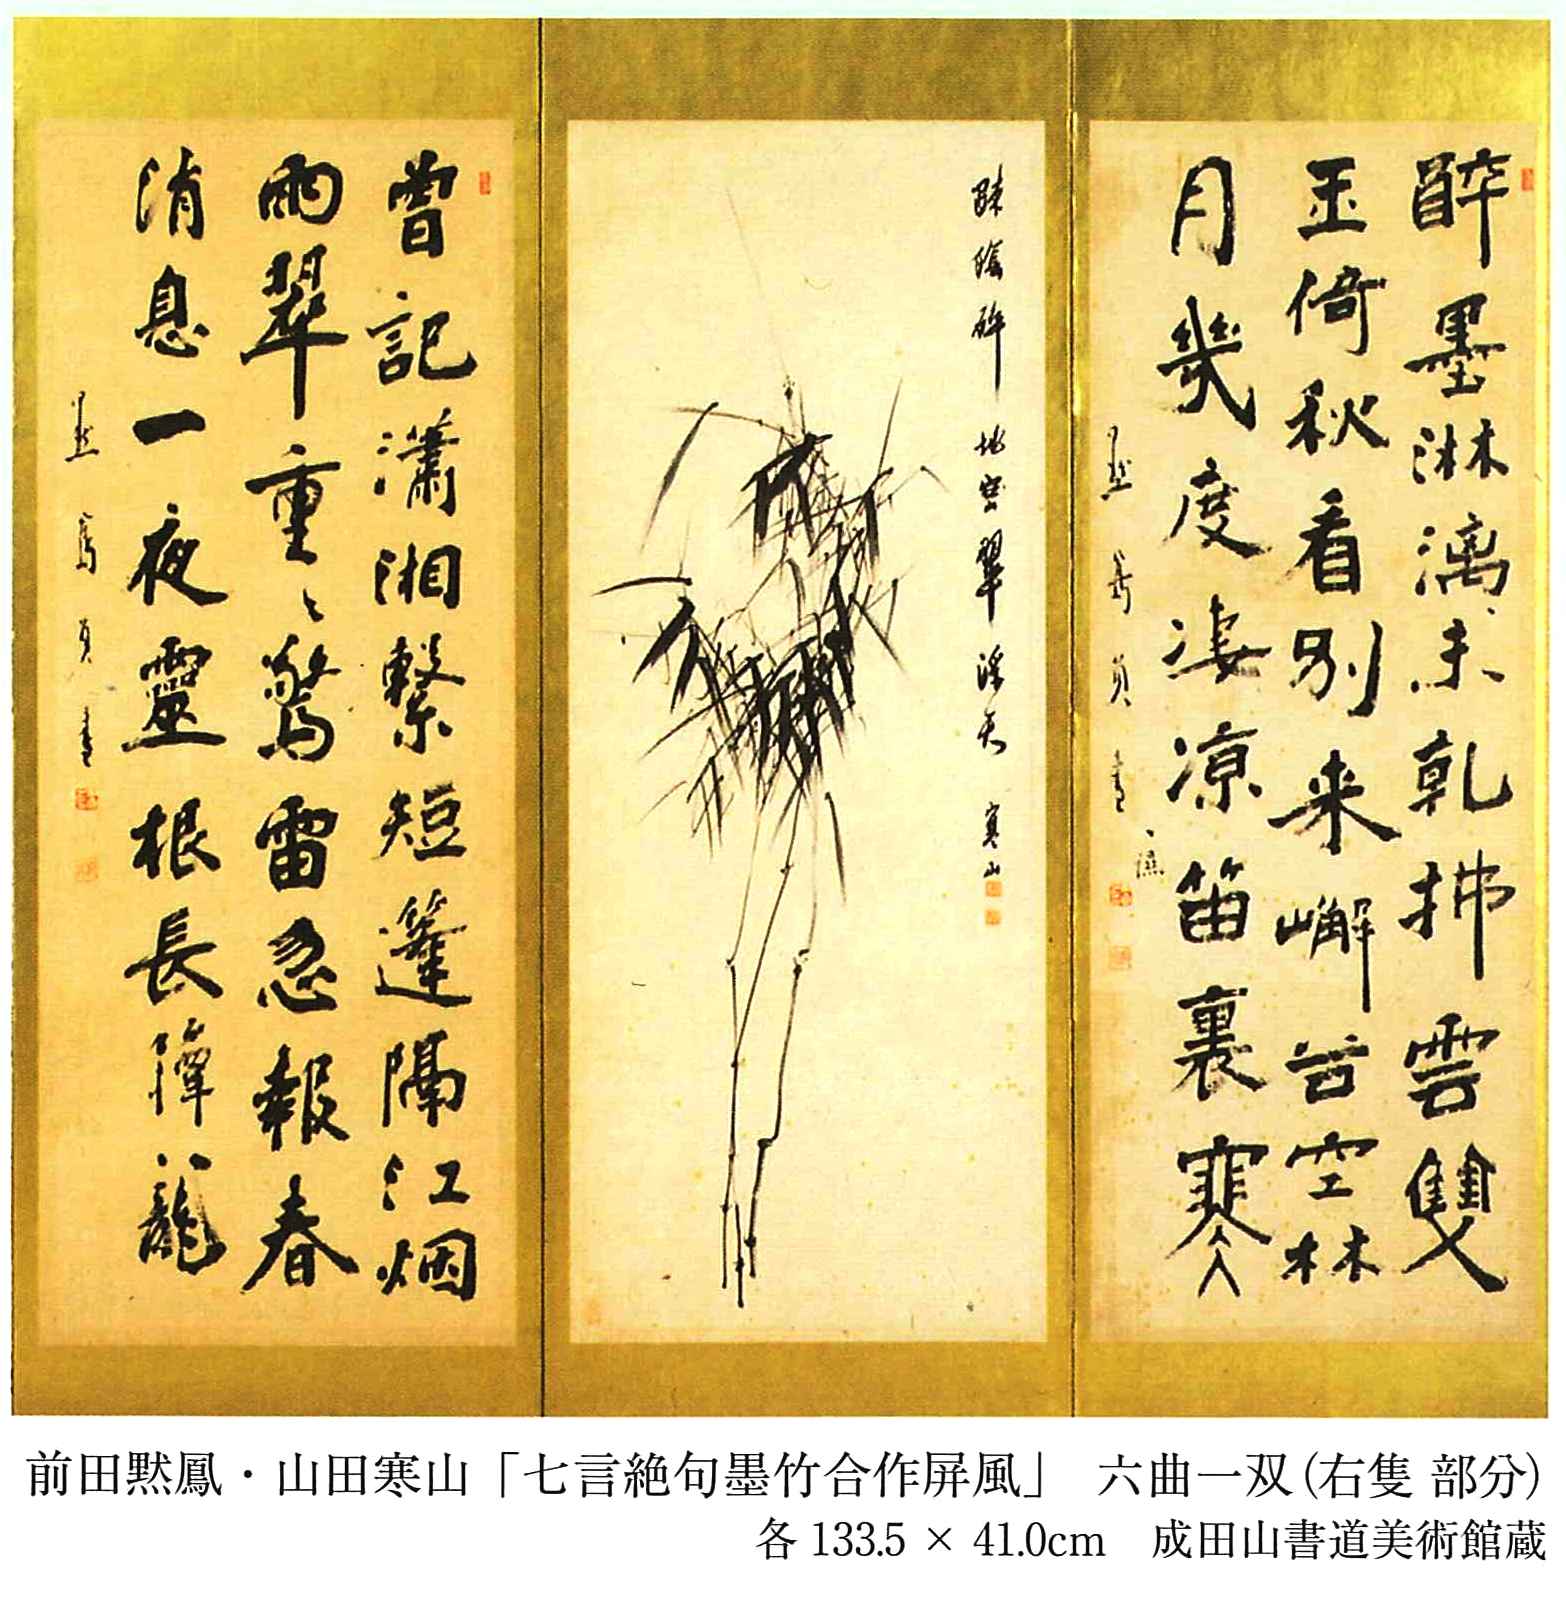 醉墨淋漓未乾拂雲雙
玉倚秋看別来嶰谷空林
月幾度凄凉笛裏寒
黙鳳貞書
踈陰砕地密翠深天 寒山
曽記瀟湘繋短篷隔江烟
雨翠重〻驚雷忽報春
消息一夜靈根長籜龍
黙鳳貞書
前田黙鳳・山田寒山「七言絶句墨竹合作屏風」 六曲一双(右隻 部分)
各 133.5 × 41.0cm 成田山書道美術館蔵